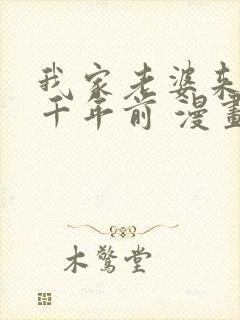 我家老婆来
千年前 漫畫
木驚堂